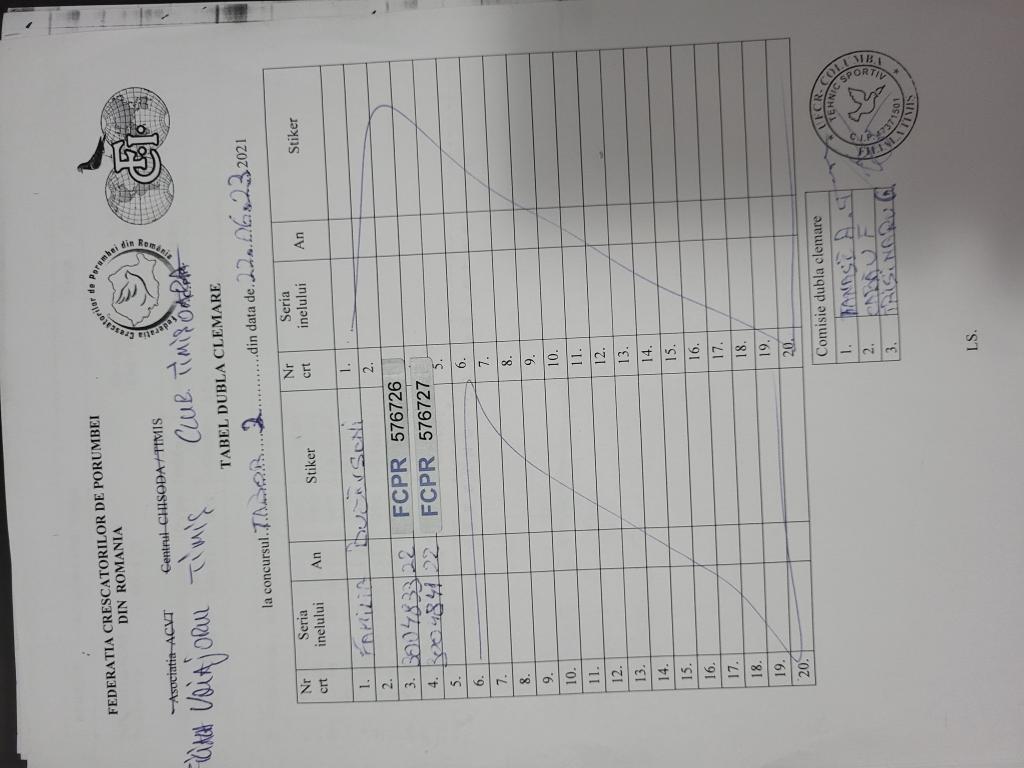 FEDERATIA CRESCATORILOR DE PORUMBEI
DIN ROMANIA
Federatia Crescatorilor de Porumbei din România
FCI
Asociatia ACVT Centrul CHISODA/TIMIS
TIMIȘ CLUB TIMIȘOARA
TABEL DUBLA CLEMARE
la concursul 2 din data de 22.06.23 2021
Nr crt Seria inelului An Stiker Nr crt Seria inelului An Stiker
1. FAMILIA 1.
2. 2.
3. 3004833 22 FCPR 576726
4. 3004841 22 FCPR 576727
5. 5.
6. 6.
7. 7.
8. 8.
9. 9.
10. 10.
11. 11.
12. 12.
13. 13.
14. 14.
15. 15.
16. 16.
17. 17.
18. 18.
19. 19.
20. 20.
Comisie dubla clemare
1. TANASE A.
2.
3.
UFCR-COLUMBA
TEHNIC SPORTIV
C.I.F 47371501
TIMIS
LS.